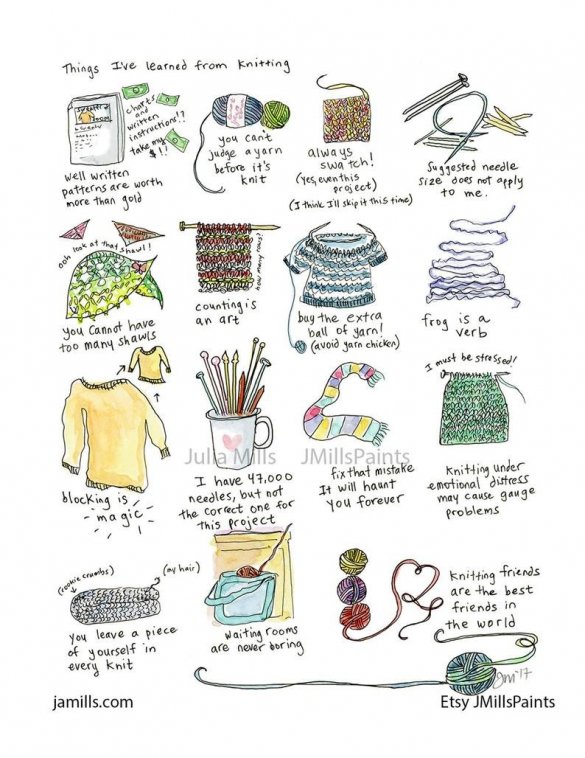 Things I've learned from Knitting
charts
and
written
instructions!?
take my
$!!
well written
patterns are worth
more than gold
you can't
judge a yarn
before it's
knit
always
swatch!
(yes, even this
project)
(I think I'll skip it this time)
Suggested needle
size does not apply
to me.
Ooh look at that shawl!
you cannot have
too many shawls
counting is
an art
buy the extra
ball of yarn!
(avoid yarn chicken)
frog is a
verb
blocking is
magic
I have 47,000
needles, but not
the correct one for
this project
fix that mistake
It will haunt
you forever
I must be stressed!
Knitting under
emotional distress
may cause gauge
problems
Julia Mills JMillsPaints
(cookie crumbs)
(my hair)
you leave a piece
of yourself in
every knit
waiting rooms
are never boring
Knitting friends
are the best
friends in
the world
JM '17
jamills.com
Etsy JMillsPaints